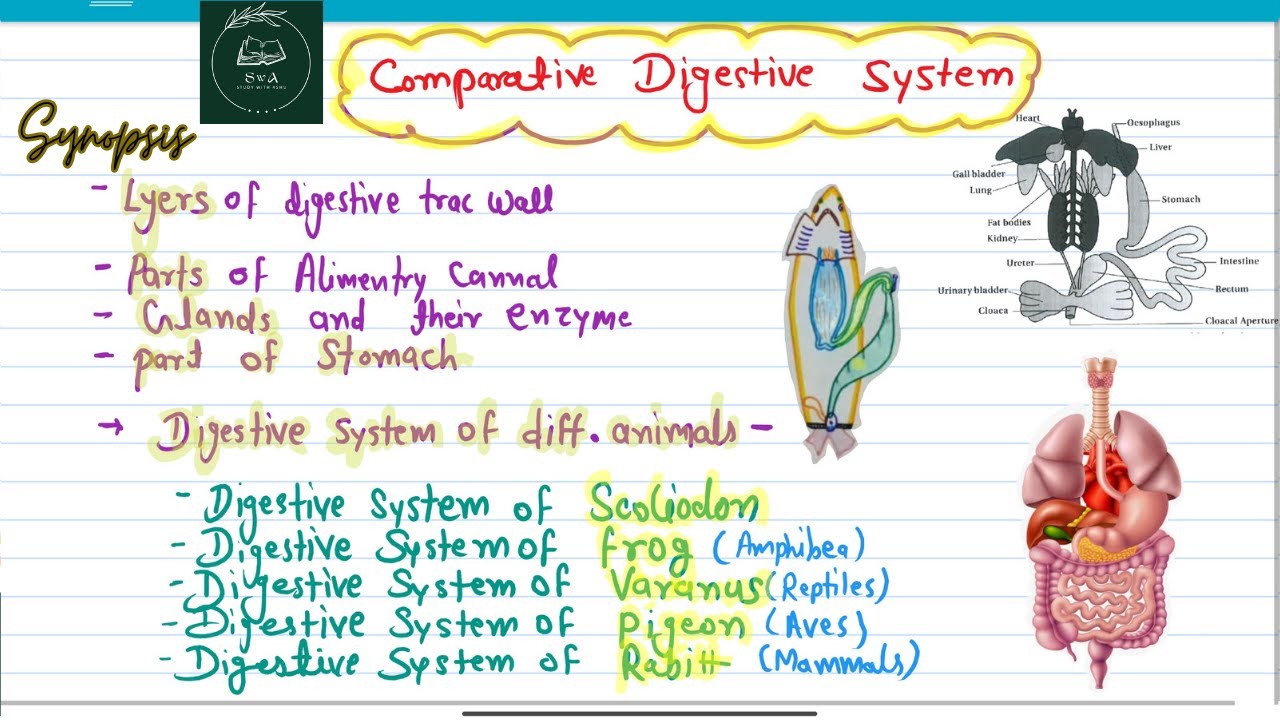 SwA
STUDY WITH ASHU
Comparative Digestive System
Synopsis
- Lyers of digestive trac wall
- Parts of Alimentry Cannal
- Glands and their enzyme
- part of Stomach
→ Digestive System of diff. animals -
- Digestive System of Scoliodon
- Digestive System of frog (Amphibea)
- Digestive System of Varanus (Reptiles)
- Digestive System of pigeon (Aves)
- Digestive System of Rabitt (Mammals)
Heart
Oesophagus
Liver
Gall bladder
Lung
Stomach
Fat bodies
Kidney
Ureter
Intestine
Urinary bladder
Rectum
Cloaca
Cloacal Aperture